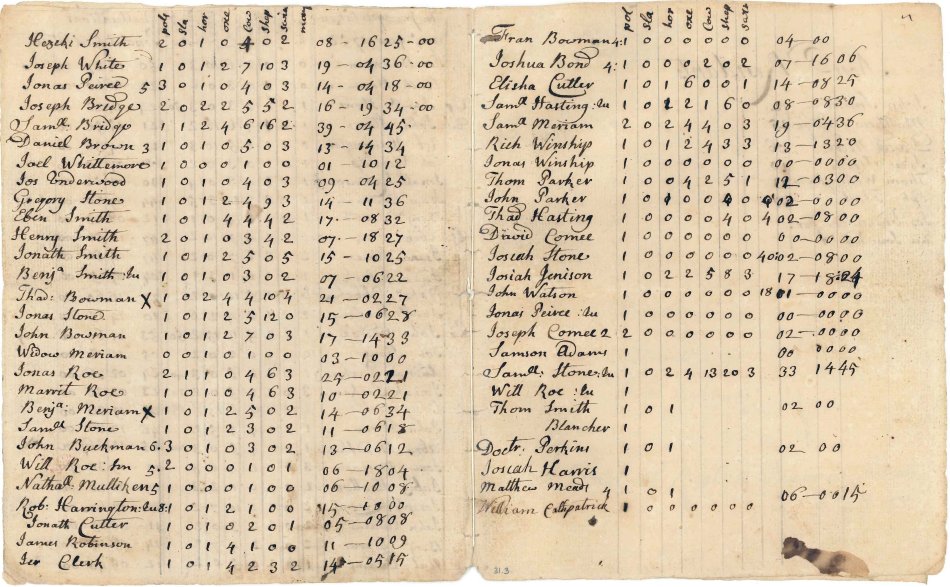 pol sla hor oxe Cow shep swi mony
Hezeki Smith 2 0 1 0 4 0 2 08 - 16 25-00
Joseph White 1 0 1 2 7 10 3 19 - 04 36-00
Jonas Peirce 5 3 0 1 0 4 0 3 14 - 04 18-00
Joseph Bridge 2 0 2 2 5 5 2 16 - 19 34-00
Samll Bridge 1 1 2 4 6 16 2 39 - 04 45
Daniel Brown 3 1 0 1 0 5 0 3 13 - 14 34
Joel Whittemore 1 0 0 0 1 0 0 01 10 12
Jos Underwood 1 0 1 0 4 0 3 09 04 25
Gregory Stone 1 0 1 2 4 9 3 14 - 11 36
Eben Smith 1 0 1 4 4 4 2 17 - 08 32
Henry Smith 2 0 1 0 3 4 2 07 - 18 27
Jonath Smith 1 0 1 2 5 0 5 15 - 10 25
Benja Smith :Ju 1 0 1 0 3 0 2 07 06 22
Thad: Bowman X 1 0 2 4 4 10 4 21 - 02 27
Jonas Stone 1 0 1 2 5 12 0 15 - 06 28
John Bowman 1 0 1 2 7 0 3 17 - 14 33
Widow Meriam 0 0 0 0 1 0 0 03 - 10 00
Jonas Roe 2 1 1 0 4 6 3 25 - 02 21
Marrit Roe 1 0 1 0 4 6 3 10 - 02 21
Benja: Meriam X 1 0 1 2 5 0 2 14 - 06 34
Samll Stone 1 0 1 2 3 0 2 11 - 06 18
John Buckman 6. 3 0 1 0 3 0 2 13 - 06 12
Will Roe: Sn 5. 2 0 0 0 1 0 1 06 - 18 04
Nathall Mulliken 5 1 0 0 0 1 0 0 06 - 10 08
Rob: Harrington: Ju 8: 1 0 1 2 1 0 0 15 - 10 00
Jonath Cutter 1 0 1 0 2 0 1 05 - 08 08
James Robinson 1 0 1 4 1 0 0 11 - 10 09
Jer Clerk 1 0 1 4 2 3 2 14 - 05 15
pol sla hor oxe Cow shep swi
Fran Bowman 4: 1 0 0 0 0 0 0 04 - 00
Joshua Bond 4: 1 0 0 0 2 0 2 07 - 16 06
Elisha Cutler 1 0 1 6 0 0 1 14 - 08 25
Samll Hasting: Ju 1 0 2 1 6 0 08 - 08 30
Samll Meriam 2 0 2 4 4 0 3 19 - 04 36
Rich Winship 1 0 1 2 4 3 3 13 - 13 20
Jonas Winship 1 0 0 0 0 0 0 00 - 00 00
Thom Parker 1 0 0 4 2 5 1 12 - 03 00
John Parker 1 0 0 0 0 02 - 00 00
Thad Hasting 1 0 0 0 0 4 0 4 02 - 08 00
David Comee 1 0 0 0 0 0 0 00 - 00 00
Josiah Stone 1 0 0 0 0 0 0 40: 02 - 08 00
Josiah Jenison 1 0 2 2 5 8 3 17 - 18:24
John Watson 1 0 0 0 0 0 0 18 01 - 00 00
Jonas Peirce :Ju 1 0 0 0 0 0 0 00 - 00 00
Joseph Comee 2 2 0 0 0 0 0 0 02 - 00 00
Samson Adams 1 00 00 00
Samll: Stone: Ju 1 0 2 4 13 20 3 33 14 45
Will Roe :Ju 1
Thom Smith 1 0 1 02 00
Blancher 1
Doctr. Perkins 1 0 1 02 00
Josiah Harris 1
Matthew Mead 4 1 0 1 06 - 00 15
William Cathpatrick 1 0 0 0 0 0 0
31.3